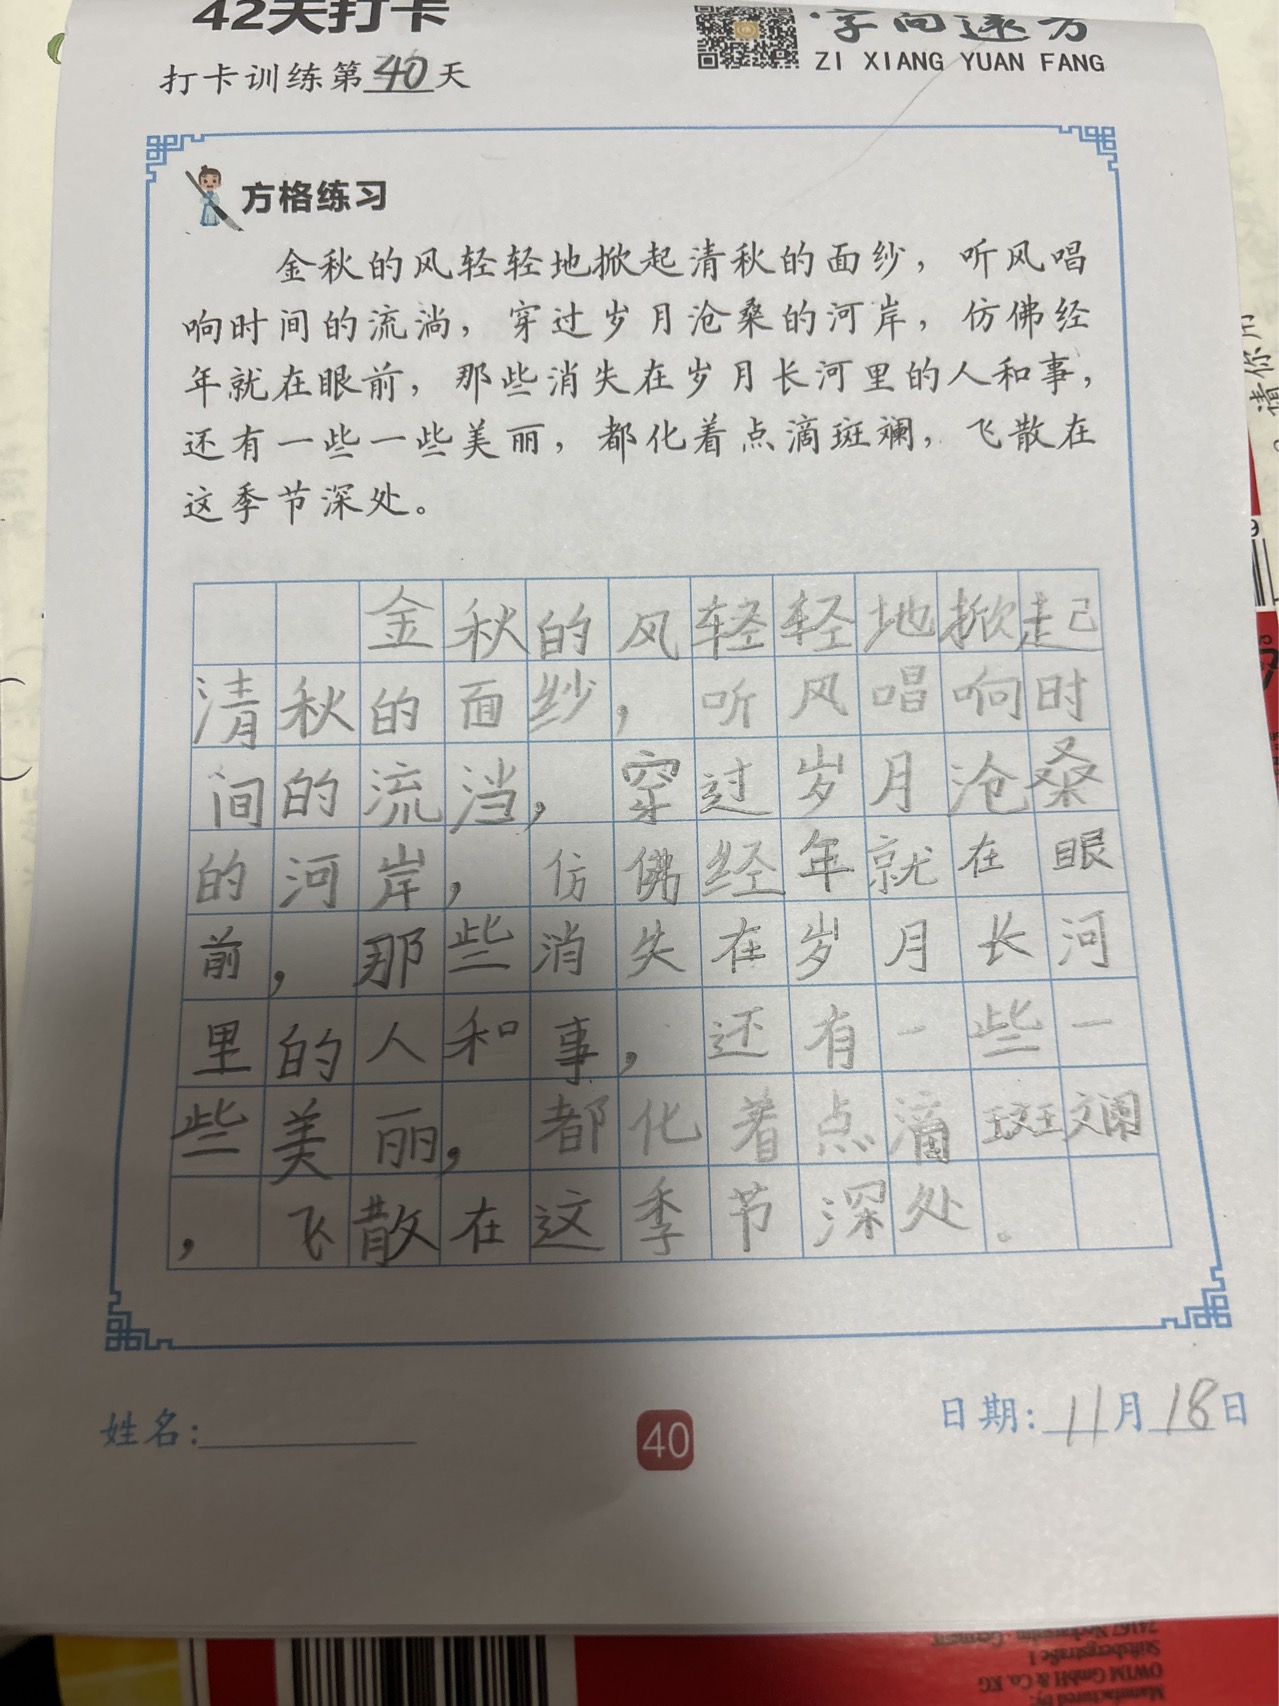 42天打卡
字向远方
ZI XIANG YUAN FANG
打卡训练第40天
方格练习
金秋的风轻轻地掀起清秋的面纱，听风唱
响时间的流淌，穿过岁月沧桑的河岸，仿佛经
年就在眼前，那些消失在岁月长河里的人和事，
还有一些一些美丽，都化着点滴斑斓，飞散在
这季节深处。
金秋的风轻轻地掀起
清秋的面纱，听风唱响时
间的流淌，穿过岁月沧桑
的河岸，仿佛经年就在眼
前，那些消失在岁月长河
里的人和事，还有一些一
些美丽，都化着点滴斑斓
，飞散在这季节深处。
姓名：
40
日期：11月18日
Manufactured by:
OWIM GmbH & Co. KG
Stiftsbergstraße 1
74167 Neckarsulm · Germany